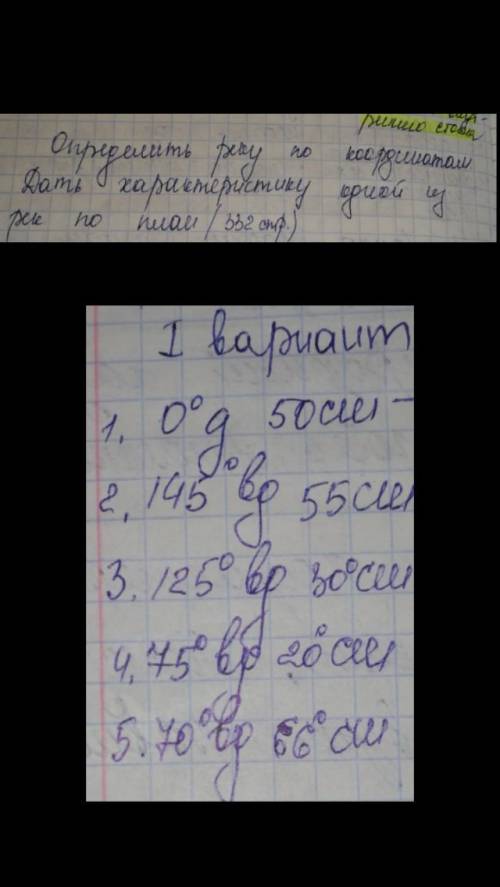 решно ставят
Определить реку по координатам
Дать характеристику одной из
рек по план (332 стр.)
I вариант
1. 0° д 50 сш -
2. 145° вд 55 сш
3. 125° вд 30° сш
4. 75° вд 20° сш
5. 70° вд 66° сш